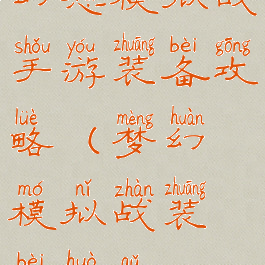 shǒu yóu zhuāng bèi gōng
手游装备攻
lüè mèng huàn
略（梦幻
mó nǐ zhàn zhuāng
模拟战装
bèi huò qǔ